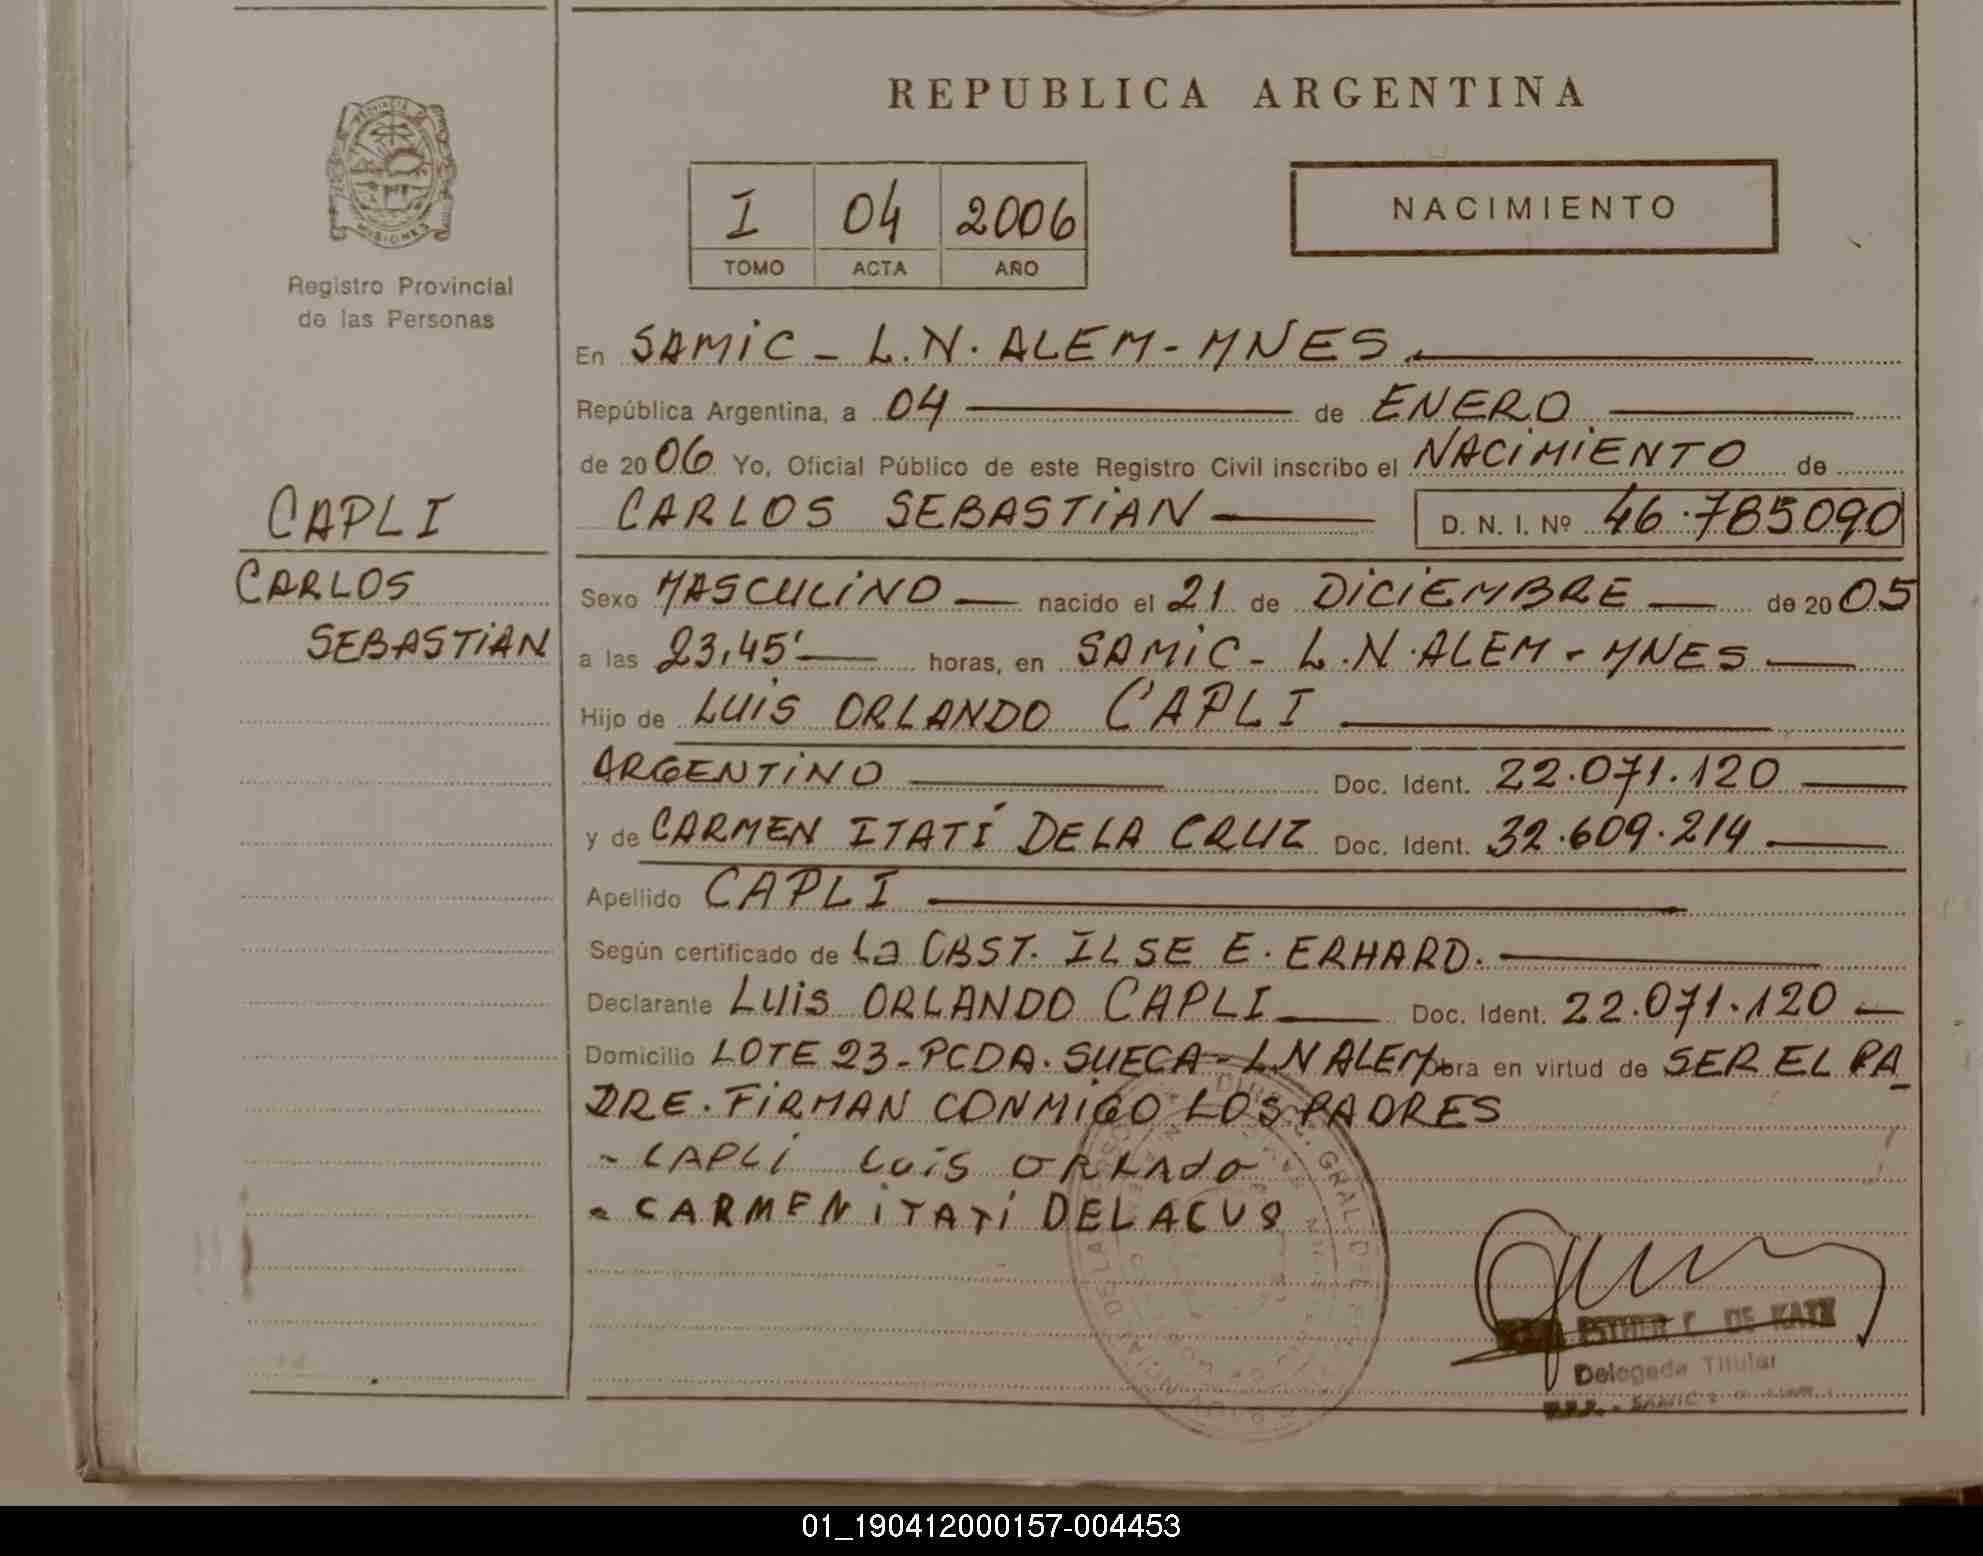 REPUBLICA ARGENTINA
PROVINCIA DE MISIONES
Registro Provincial
de las Personas
I 04 2006
TOMO ACTA AÑO
NACIMIENTO
En SAMIC - L.N. ALEM - MNES.
República Argentina, a 04 de ENERO
de 2006 Yo, Oficial Público de este Registro Civil inscribo el NACIMIENTO de
CARLOS SEBASTIAN D. N. I. Nº 46.785090
CAPLI
CARLOS
SEBASTIAN
Sexo MASCULINO nacido el 21 de DICIEMBRE de 2005
a las 23,45' horas, en SAMIC - L.N. ALEM - MNES
Hijo de LUIS ORLANDO CAPLI
ARGENTINO Doc. Ident. 22.071.120
y de CARMEN ITATÍ DE LA CRUZ Doc. Ident. 32.609.214
Apellido CAPLI
Según certificado de La OBST. ILSE E. ERHARD.
Declarante LUIS ORLANDO CAPLI Doc. Ident. 22.071.120
Domicilio LOTE 23 - PCDA. SUECA - L.N ALEM Obra en virtud de SER EL PA
DRE. FIRMAN CONMIGO LOS PADRES
- CAPLI Luis ORLAdo
- CARMEN ITATI DELACUS
ESTHER F. DE KATZ
Delegada Titular
SAMIC
01_190412000157-004453